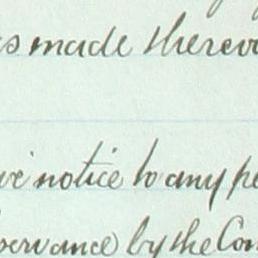 s made thereo
ve notice to any pe
servance by the Con